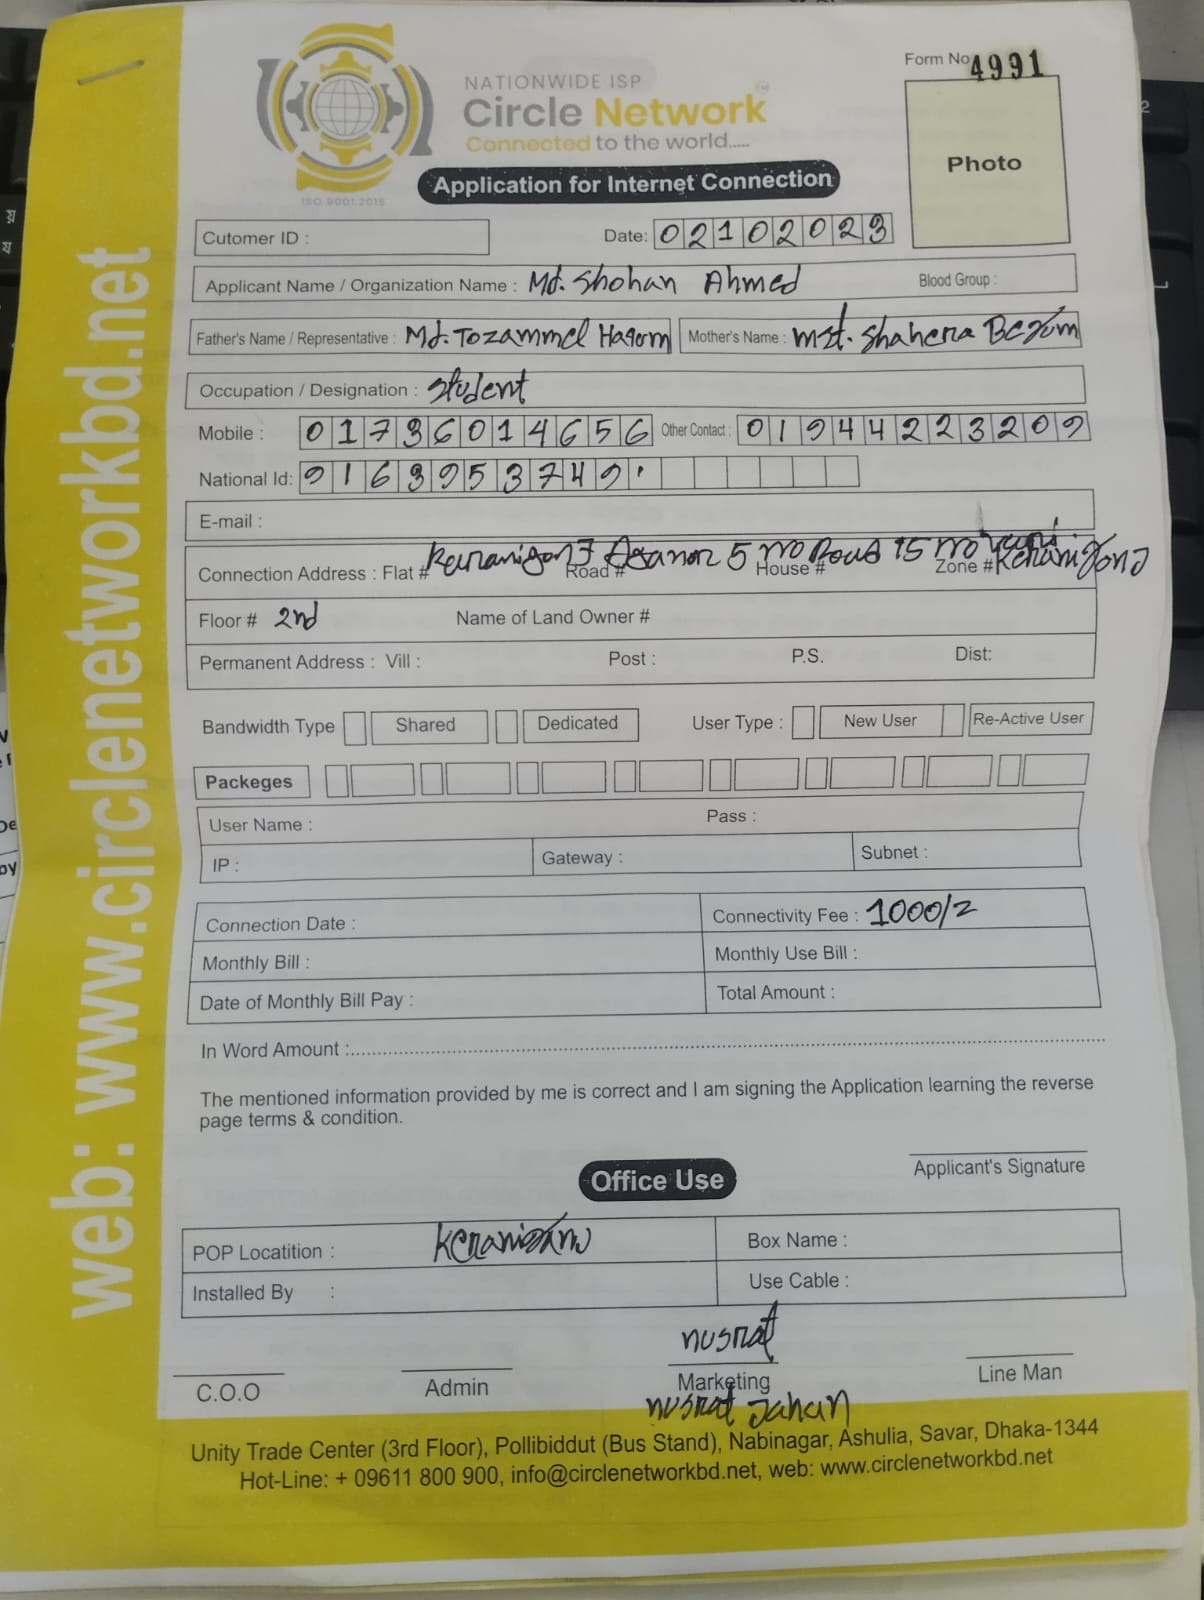 Form No 4991
NATIONWIDE ISP
Circle Network
Connected to the world.....
ISO 9001:2015
Photo
Application for Internet Connection
Cutomer ID :
Date: 02102023
Applicant Name / Organization Name : Md. Shohan Ahmed Blood Group :
Father's Name / Representative : Md. Tozammel Haqom Mother's Name : Mst. Shahera Begum
Occupation / Designation : Student
Mobile : 01736014656 Other Contact : 01944223209
National Id: 9163953749
E-mail :
Connection Address : Flat # Road # 5 no House # 15 no Zone # Keranigonj
Floor # 2nd Name of Land Owner #
Permanent Address : Vill : Post : P.S. Dist:
Bandwidth Type Shared Dedicated User Type : New User Re-Active User
Packeges
User Name : Pass :
IP : Gateway : Subnet :
Connection Date : Connectivity Fee : 1000/=
Monthly Bill : Monthly Use Bill :
Date of Monthly Bill Pay : Total Amount :
In Word Amount :
The mentioned information provided by me is correct and I am signing the Application learning the reverse
page terms & condition.
Applicant's Signature
Office Use
POP Locatition : Keraniganj Box Name :
Installed By : Use Cable :
nusrat
C.O.O Admin Marketing Line Man
nusrat Jahan
Unity Trade Center (3rd Floor), Pollibiddut (Bus Stand), Nabinagar, Ashulia, Savar, Dhaka-1344
Hot-Line: + 09611 800 900, info@circlenetworkbd.net, web: www.circlenetworkbd.net
web: www.circlenetworkbd.net